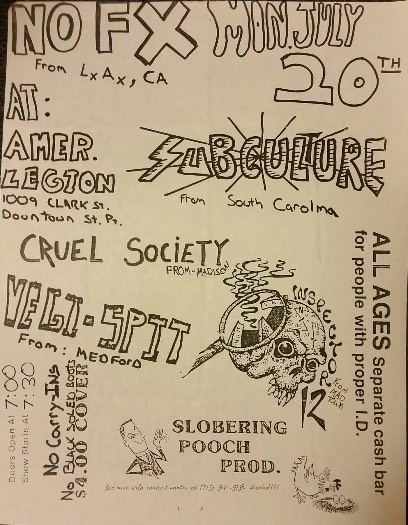 NOFX
MON. JULY
20TH
From LxAx, CA
AT:
AMER.
LEGION
1009 CLARK St.
Downtown St. Pt.
SUBCULTURE
From South Carolina
CRUEL SOCIETY
FROM-MADISON
VEGI-SPIT
From: MEDFord
12
ALL AGES Separate cash bar
for people with proper I.D.
Doors Open At 7:00
Show Starts At 7:30
No Carry-INS
No BLACK SOLED Boots
$4.00 COVER
SLOBERING
POOCH
PROD.
for more info contact